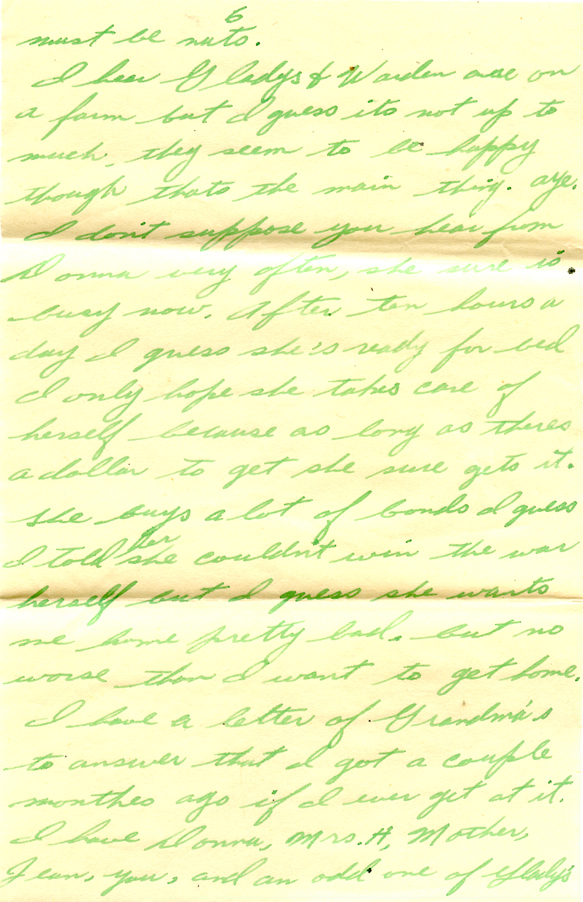 6
must be nuts.
I hear Gladys & Warden are on
a farm but I guess its not up to
much, they seem to be happy
though thats the main thing. aye.
I don't suppose you hear from
Donna very often, she sure is
busy now. After ten hours a
day I guess she's ready for bed
I only hope she takes care of
herself because as long as theres
a dollar to get she sure gets it.
She buys a lot of bonds I guess
her
I told she couldn't win the war
herself but I guess she wants
me home pretty bad. but no
worse than I want to get home.
I have a letter of Grandma's
to answer that I got a couple
months ago if I ever get at it.
I have Donna, Mrs. H, Mother,
Jean, you, and an odd one of Glady's